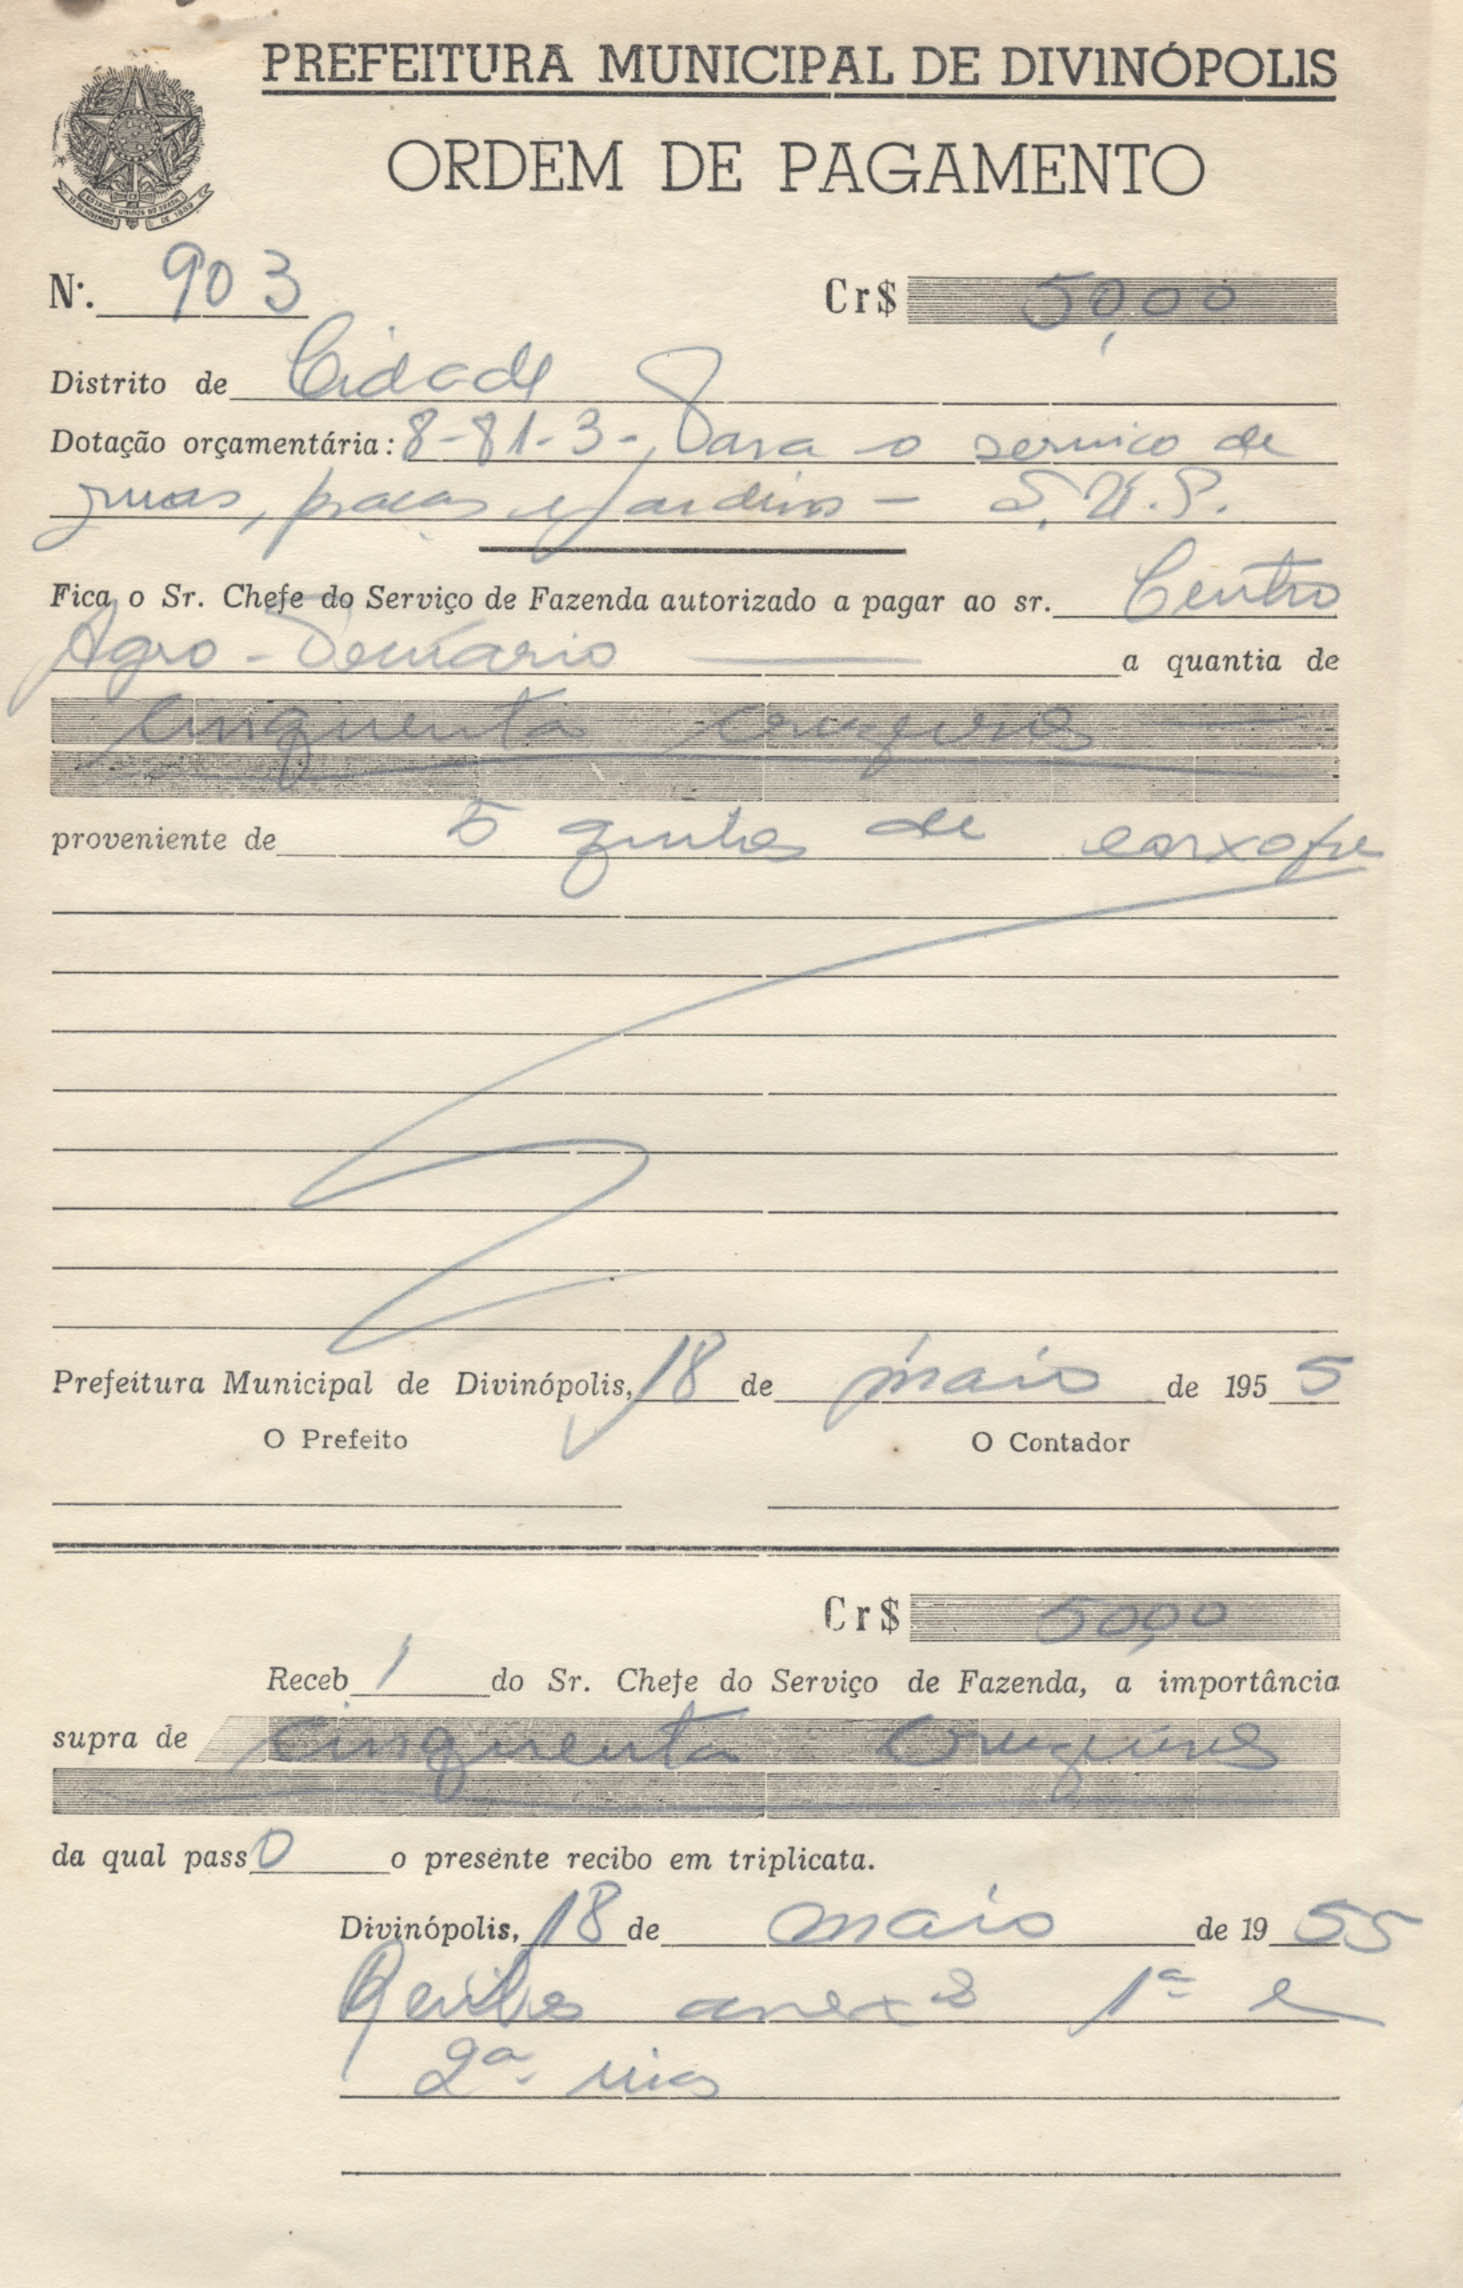 PREFEITURA MUNICIPAL DE DIVINÓPOLIS
ORDEM DE PAGAMENTO
ESTADOS UNIDOS DO BRASIL
15 DE NOVEMBRO DE 1889
Nº. 903 Cr$ 50,00
Distrito de Cidade
Dotação orçamentária: 8-81-3- Para o serviço de
ruas, praças e jardins - S.U.P.
Fica o Sr. Chefe do Serviço de Fazenda autorizado a pagar ao sr. Centro
Agro-Pecuário a quantia de
cinquenta cruzeiros
proveniente de 5 quilos de enxofre
Prefeitura Municipal de Divinópolis, 18 de maio de 1955
O Prefeito O Contador
Cr$ 50,00
Receb i do Sr. Chefe do Serviço de Fazenda, a importância
supra de cinquenta cruzeiros
da qual passo o presente recibo em triplicata.
Divinópolis, 18 de maio de 1955
Recibos anexos 1ª e
2ª vias